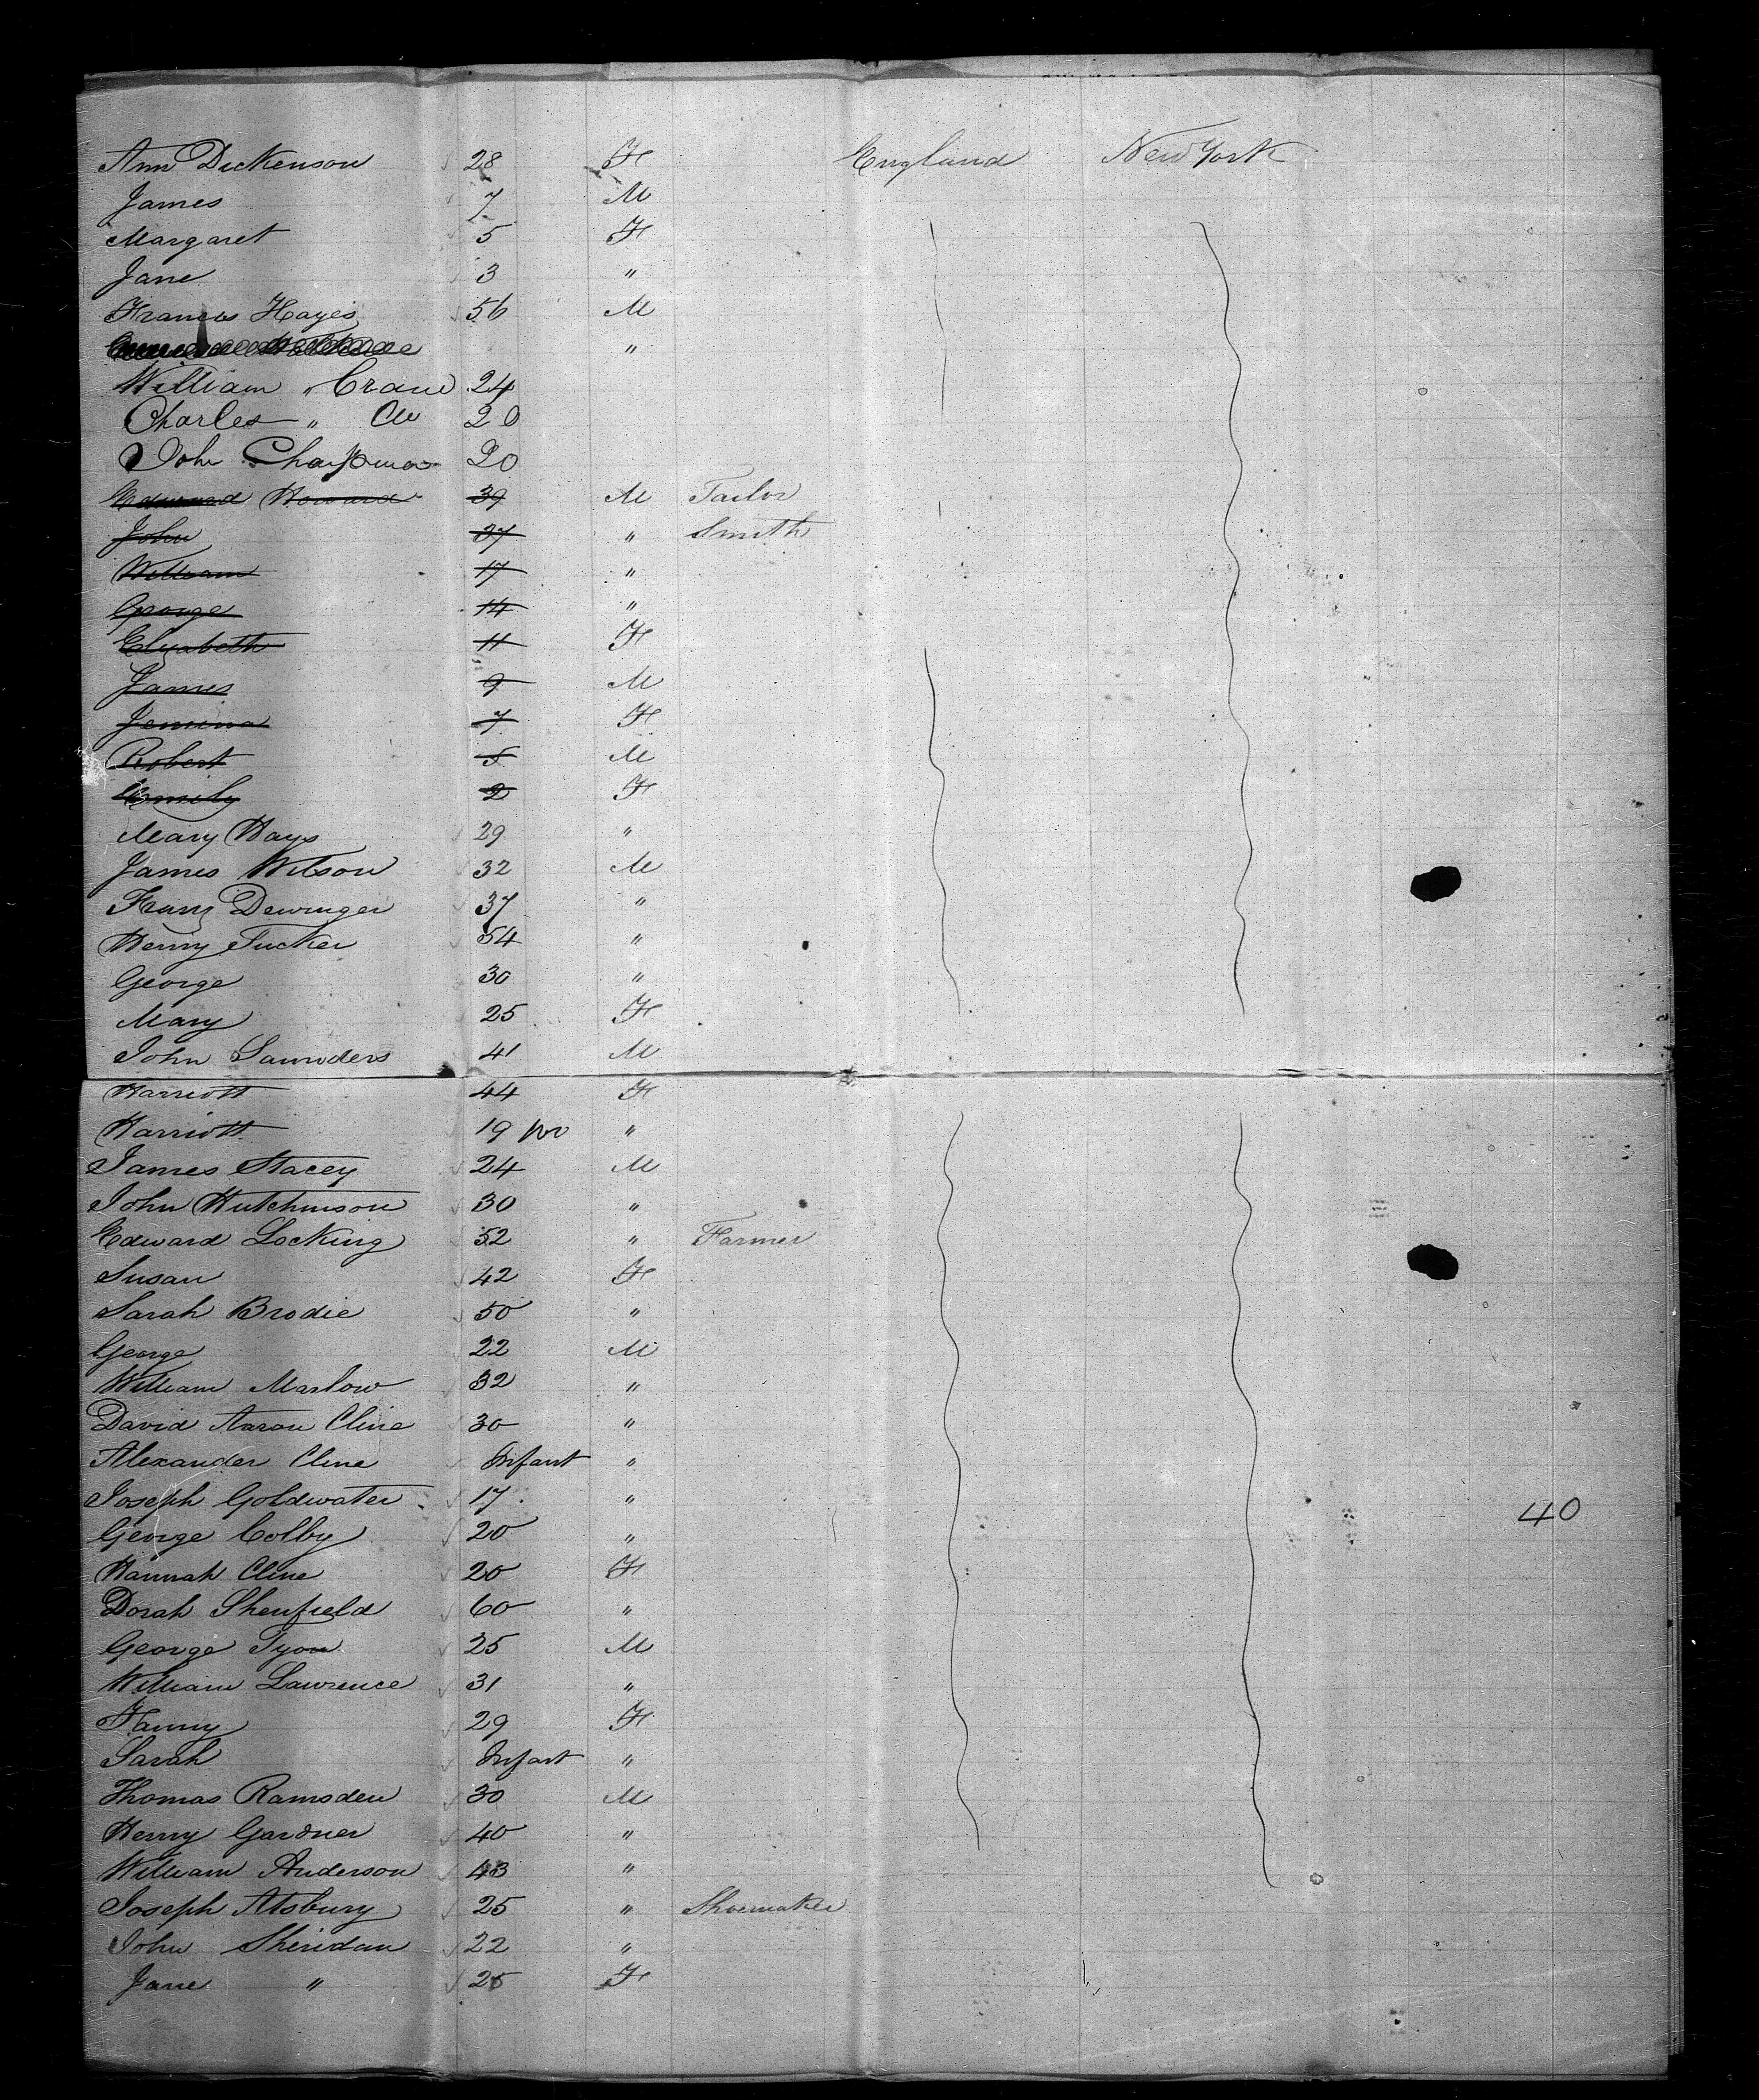 Ann Dickenson 28 F England New York
James 7 M
Margaret 5 F
Jane 3 "
Francis Hayes 56 M
"
William " Crane 24
Charles " 20
John Chapman 20
Edward Howard 39 M Tailor
John 37 " Smith
William 17 "
George 14 "
Elizabeth 11 F
James 9 M
Jemima 7 F
Robert 5 M
Emily 2 F
Mary Hays 29 "
James Wilson 32 M
Franz Dewinger 37 "
Henry Tucker 54 "
George 30 "
Mary 25 F
John Saunders 41 M
Harriott 44 F
Harriott 19 "
James Stacey 24 M
John Hutchinson 30 "
Edward Locking 52 " Farmer
Susan 42 F
Sarah Brodie 50 "
George 22 M
William Marlow 32 "
David Aaron Cline 30 "
Alexander Cline Infant "
Joseph Goldwater 17 " 40
George Colby 20 "
Hannah Cline 20 F
Dorah Shenfield 60 "
George Tyou 25 M
William Lawrence 31 "
Fanny 29 F
Sarah Infant "
Thomas Ramsden 30 M
Henry Gardner 40 "
William Anderson 43 "
Joseph Atsbury 25 " Shoemaker
John Sheridan 22 "
Jane " 25 F